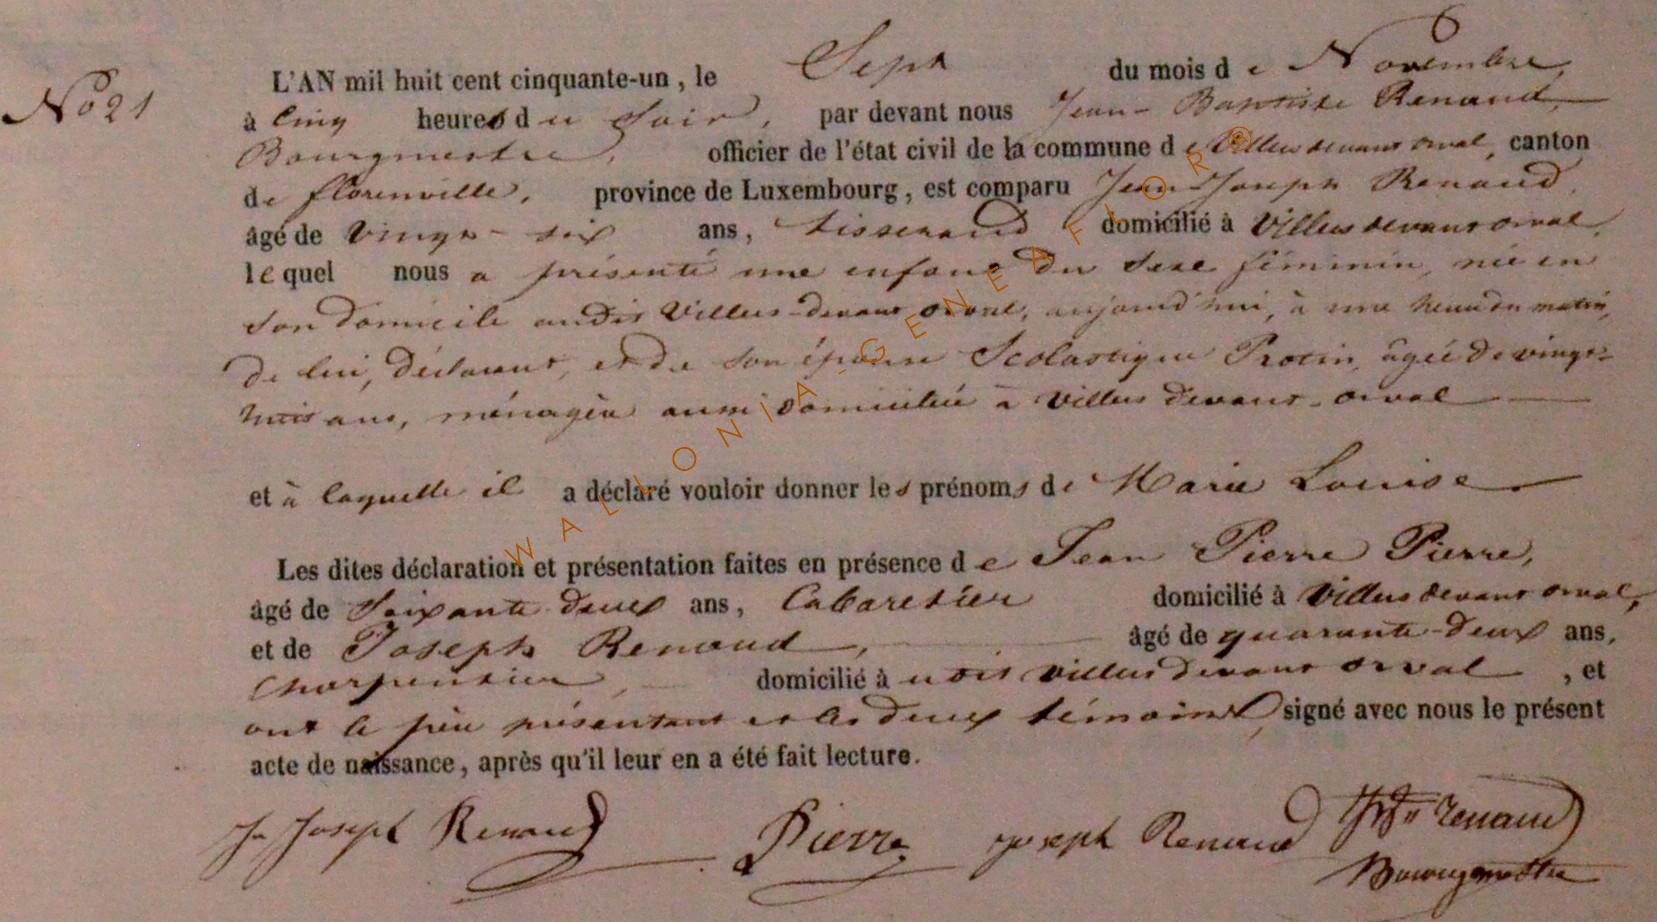 No 21
L'AN mil huit cent cinquante-un, le Sept du mois de Novembre,
à Cinq heures du Soir, par devant nous Jean-Baptiste Renaud,
Bourgmestre, officier de l'état civil de la commune de Villers devant orval, canton
de florenville, province de Luxembourg, est comparu Jean-Joseph Renaud,
âgé de vingt-six ans, tisserand domicilié à Villers devant orval,
lequel nous a présenté une enfant du sexe féminin, née en
son domicile audit Villers-devant orval, aujourd'hui, à une heure du matin,
de lui, déclarant, et de son épouse Scolastique Protin, âgée de vingt-
huit ans, ménagère aussi domiciliée à Villers devant-orval
et à laquelle il a déclaré vouloir donner les prénoms de Marie Louise
Les dites déclaration et présentation faites en présence de Jean Pierre Pierre,
âgé de Soixante deux ans, Cabaretier domicilié à Villers devant orval,
et de Joseph Renaud, âgé de quarante-deux ans,
Charpentier, domicilié à Villers devant orval, et
ont le père présentant et les deux témoins signé avec nous le présent
acte de naissance, après qu'il leur en a été fait lecture.
Jn Joseph Renaud Pierre Joseph Renaud JBte Renaud
Bourgmestre
WALLONIA-GENEAFLOR®